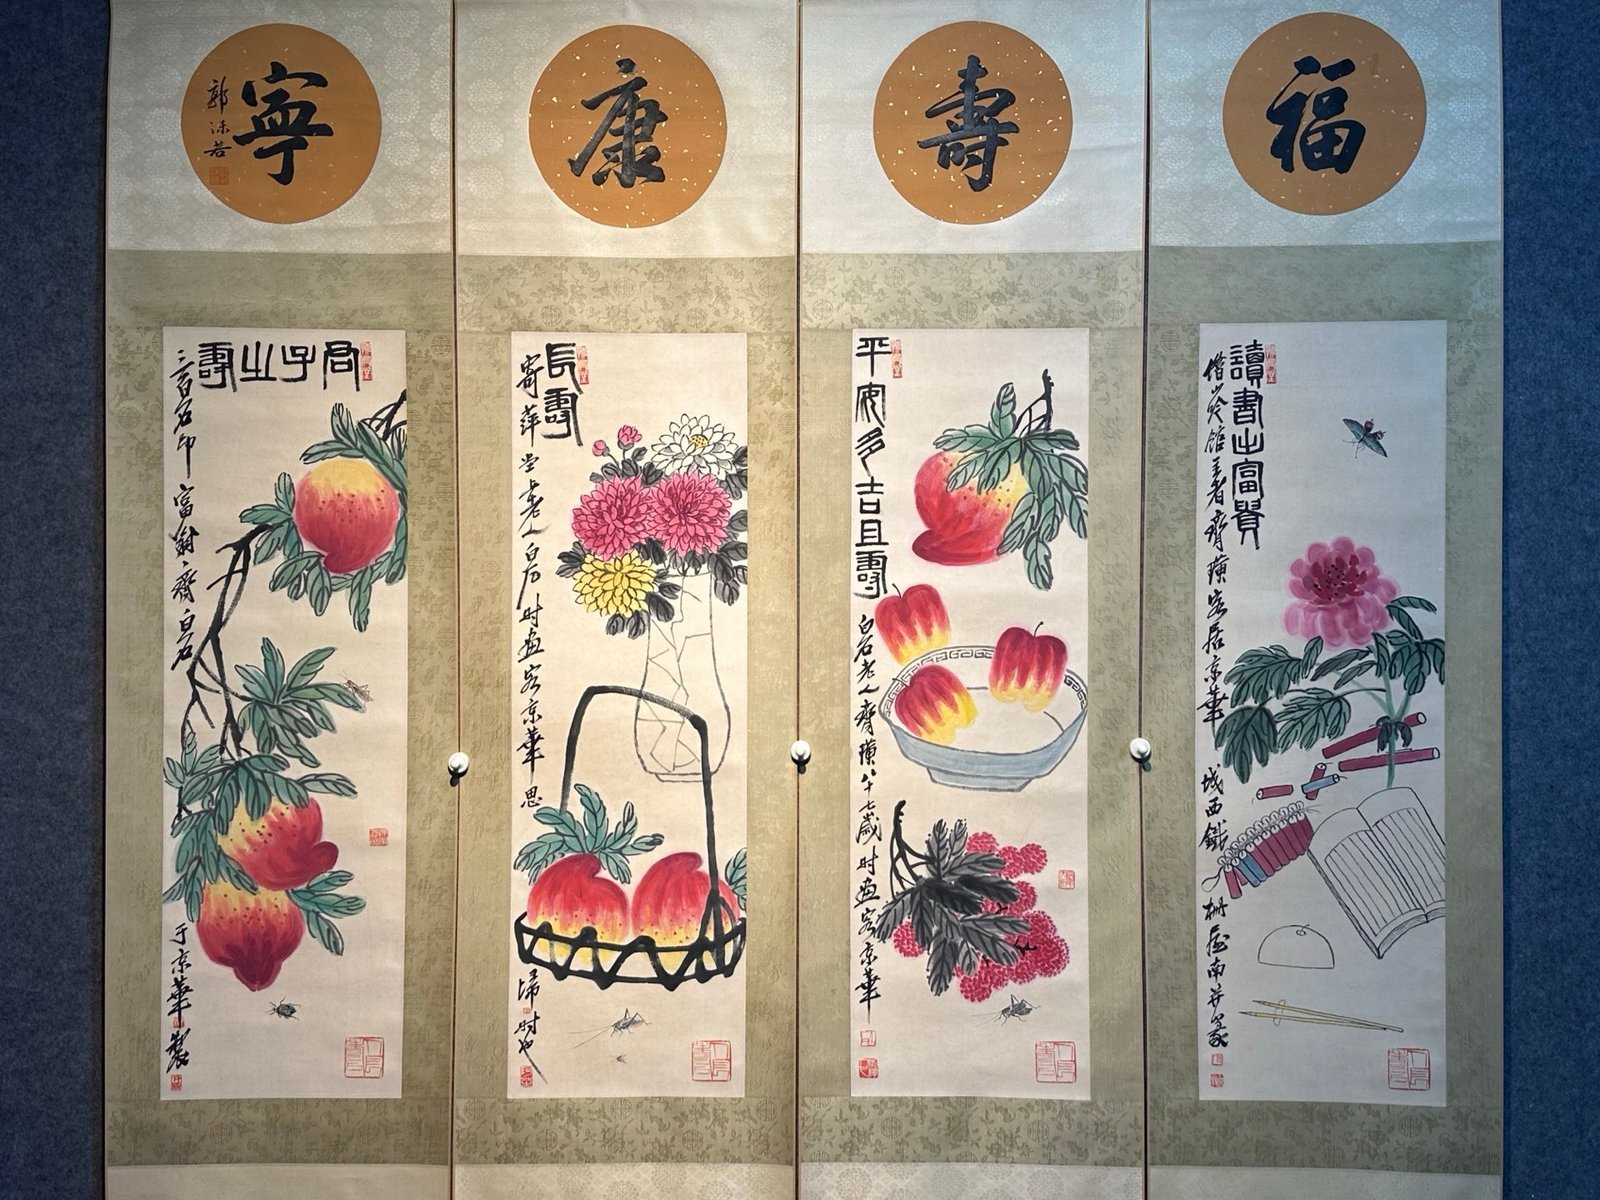 福
壽
康
寧
郭沫若
讀書之富貴
借山吟館主者齊璜客居京華城西鐵柵屋南并篆
平安多吉且壽
白石老人齊璜八十七歲時畫客京華
長壽
寄萍堂上老人白石時畫客京華思歸時也
君子之壽
三百石印富翁齊白石
于京華製